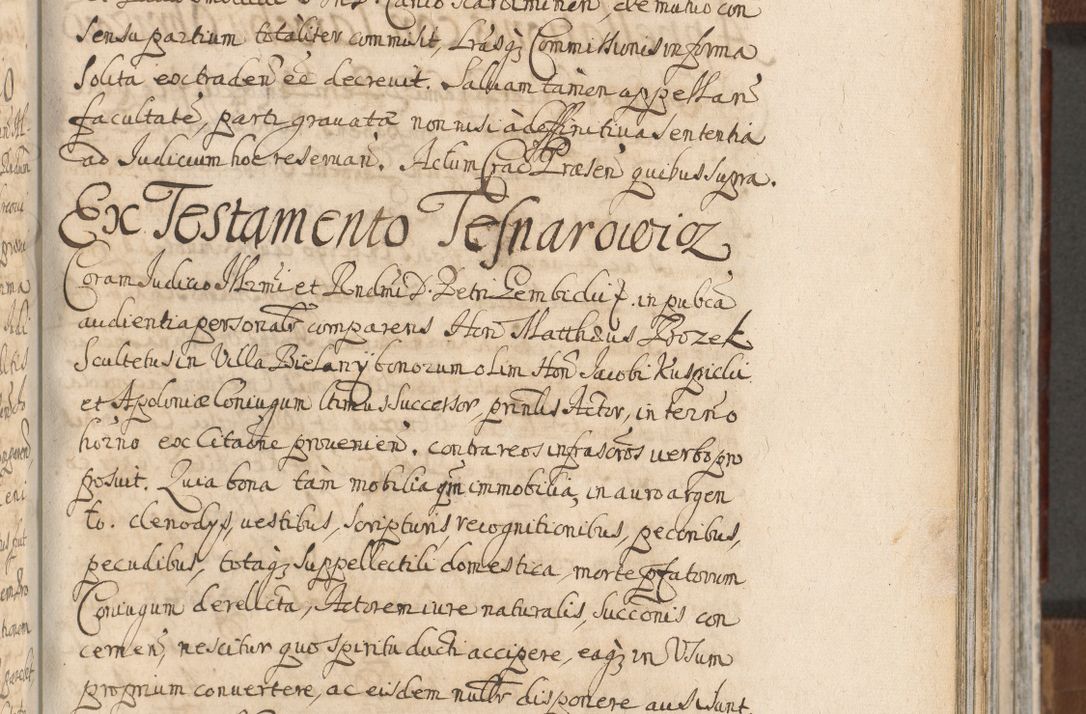 sensu partium totaliter commisit, Lrasq; Commissionis in forma
solita extraden̄ eē decrevit. Salvam tamen appellan̄
facultatē, parti gravatæ non nisi à deffinitiva sententia
ad Iudicium hoc reservan̄. Actum Crac̄ Præsen̄ quibus supra.
Ex Testamento Tesnarowicz
Coram Iudicio Illrmi et Rndmi D. Petri Gembickii in pubca
audientia personalr comparens Hon̄ Matthæus Brozek
Scultetus in Villa Bielany bonorum olim Hon̄ Iacobi Kuspicki
et Apoloniæ Coniugum ltimus successor prinlis Actor, in termo
horno ex Citaōne provenien̄. contra reos infrascros verbo pro
posuit. Quia bona tàm mobilia qm immobilia, in auro argen
to. clenodys, vestibus, scripturis, recognitionibus, pecoribus,
pecudibus, totaq; suppellectili domestica, morte pfatorum
Coniugum derelicta, Actorem iure naturalis, succōnis con
cernen̄, nescitur quo spiritu ducti accipere, eaq; in Usum
proprium convertere, ac eisdem nullr disponere ausi sunt,